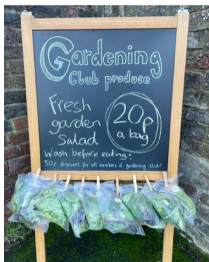 Gardening
Club produce
Fresh
garden
Salad
20p
a bag
Wash before eating!
50% discount for all members of gardening club!